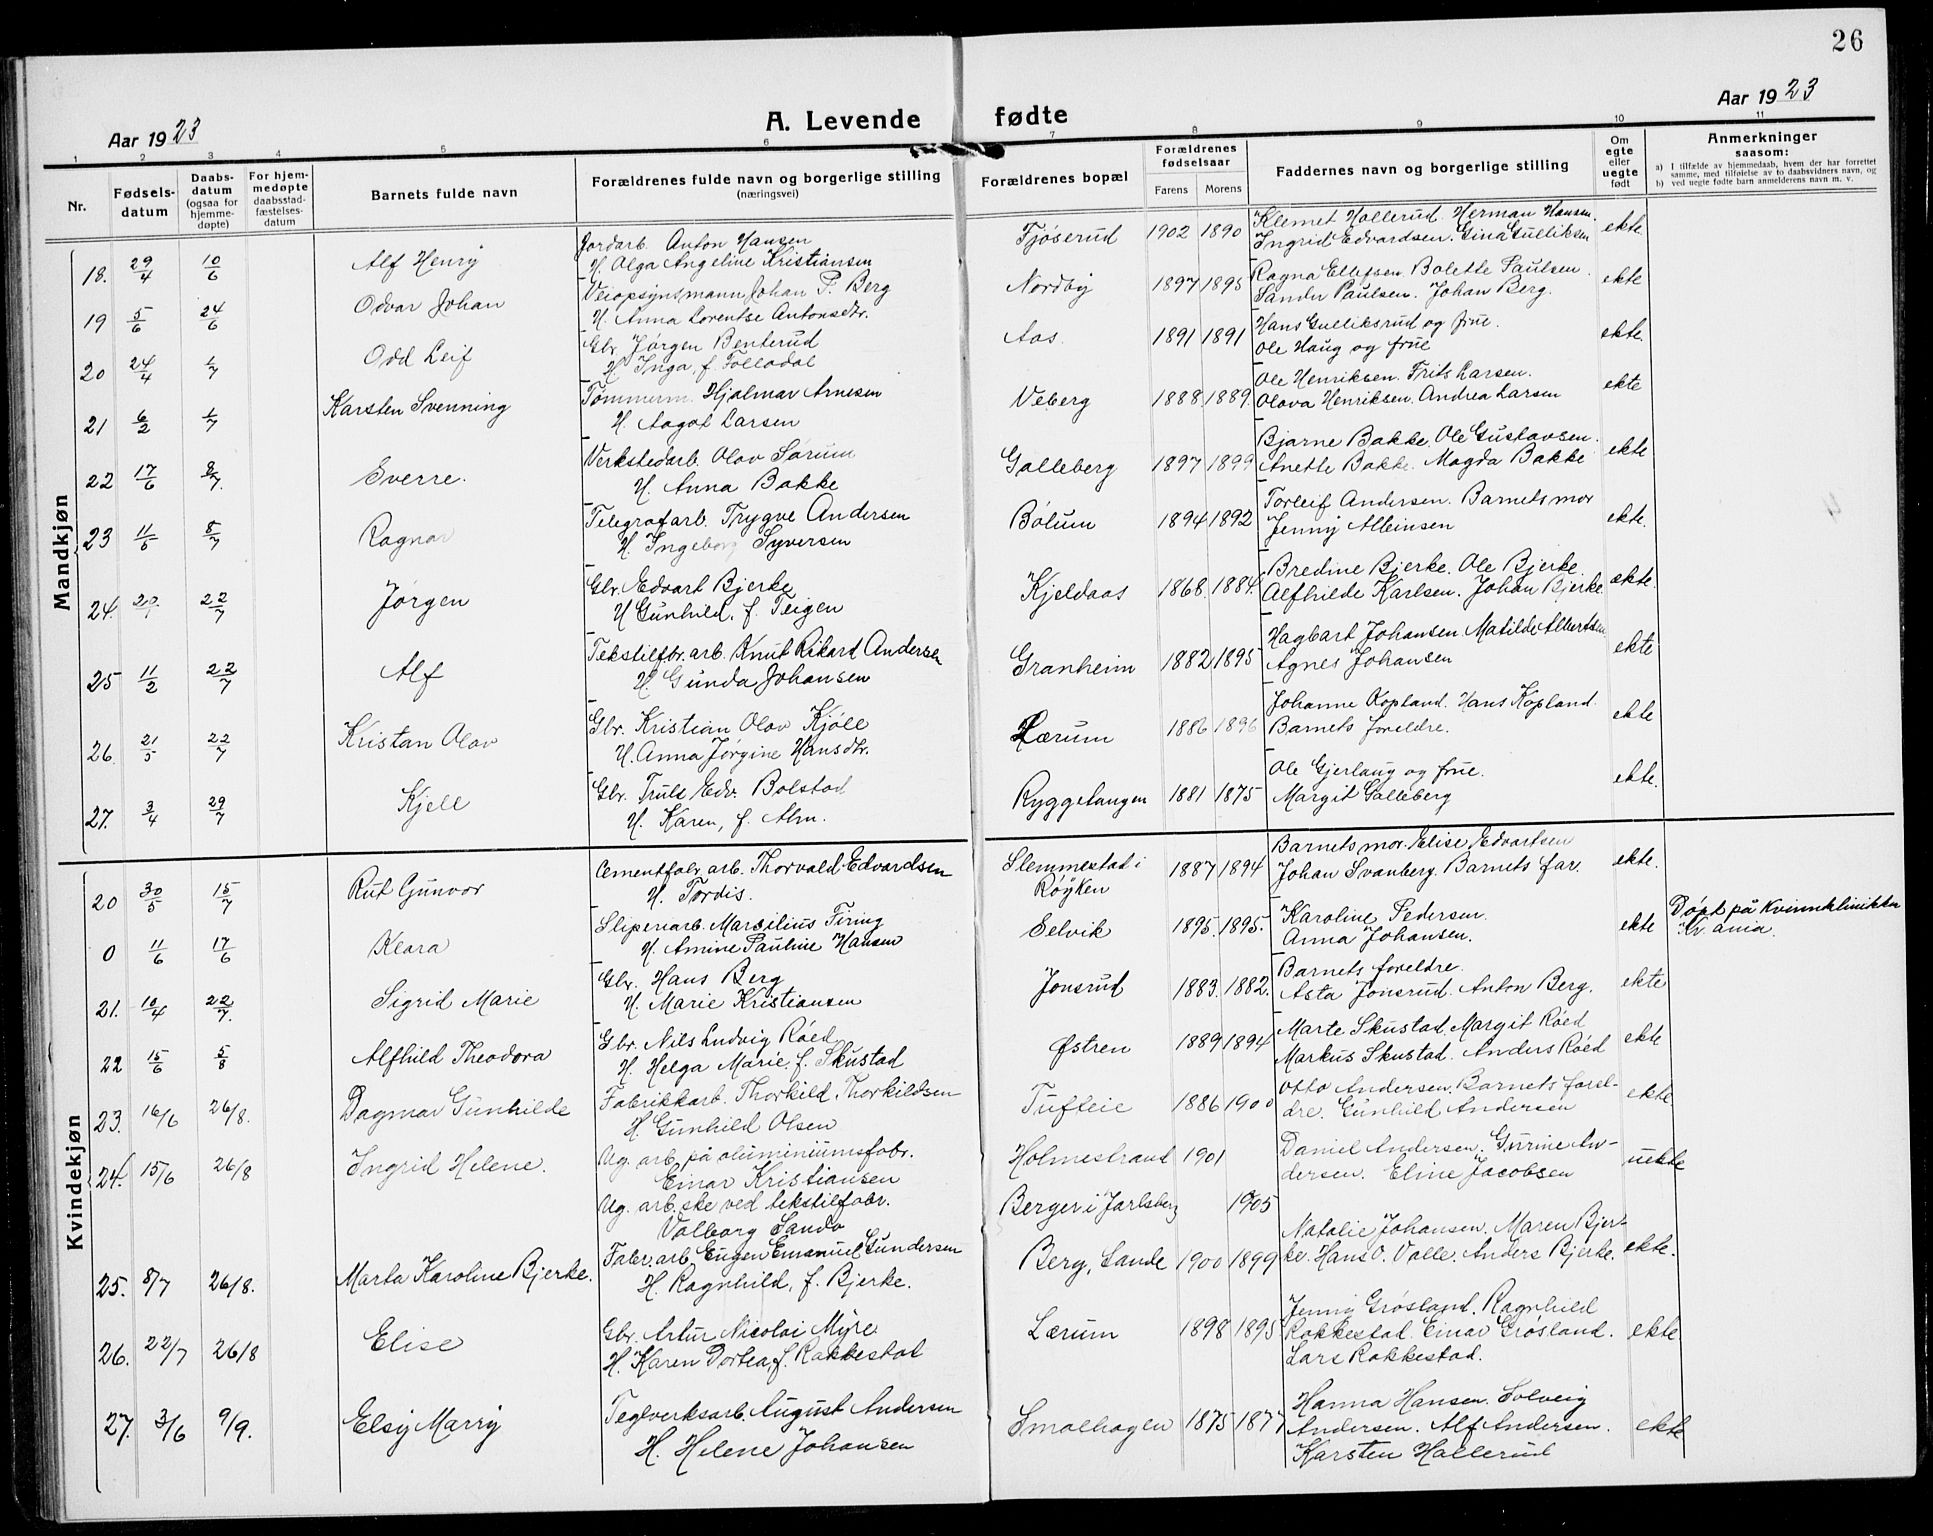 26
Aar 1923
A. Levende fødte
Aar 1923
1 2 3 4 5 6 7 8 9 10 11
Nr.
Fødsels-
datum
Daabs-
datum
(ogsaa for
hjemme-
døpte)
For hjem-
medøpte
daabsstad-
fæstelses-
datum
Barnets fulde navn
Forældrenes fulde navn og borgerlige stilling
(næringsvei)
Forældrenes bopæl
Forældrenes
fødselsaar
Farens Morens
Faddernes navn og borgerlige stilling
Om
egte
eller
uegte
født
Anmerkninger
saasom:
a) I tilfælde av hjemmedaab, hvem der har forrettet
samme, med tilføielse av to daabsvidners navn, og
b) ved uegte fødte barn anmelderens navn m. v.
Mandkjøn
18. 29/4 10/6 Alf Henry
Jordarb. Anton Hansen
H. Olga Angeline Kristiansen
Tjøserud 1902 1890
Klemet Hollerud. Herman Hansen.
Ingrid Edvardsen. Gina Gulliksen
ekte.
19 5/6 24/6 Odvar Johan
Veiopsynsmann Johan P. Berg
H. Anna Lorentse Antonsdtr.
Nordby 1897 1895
Ragna Ellefsen. Bolette Paulsen.
Sander Paulsen. Johan Berg.
ekte
20 24/4 1/7 Odd Leif
Gbr. Jørgen Benterud
H. Inga, f. Follodal
Aas. 1891 1891
Hans Gulliksrud og frue.
Ole Haug og frue
ekte.
21 6/2 1/7 Karsten Svenning
Tømmerm. Hjalmar Arnesen
H. Aagot Larsen
Veberg 1888. 1889.
Ole Henriksen. Frits Larsen.
Olava Henriksen. Andrea Larsen
ekte
22 17/6 8/7. Sverre.
Verkstedarb. Olav Sørum
H. Anna Bakke
Galleberg 1897 1899
Bjarne Bakke. Ole Gustavsen.
Anette Bakke. Magda Bakke
ekte
23 11/5 8/7 Ragnar
Telegrafarb. Trygve Andersen
H. Ingeborg Syversen
Bølum 1894 1892
Torleif Andersen. Barnets mor
Jenny Albinsen
ekte.
24. 22/7 Jørgen
Gbr. Edvart Bjerke
H Gunhild, f. Teigen
Kjeldaas 1868. 1884.
Bredine Bjerke. Ole Bjerke.
Alfhilde Karlsen. Johan Bjerke.
ekte.
25 11/2 22/7 Alf
Tekstilfbr.arb. Knut Rikard Andersen
H. Gunda Johansen
Granheim 1882. 1895
Hagbart Johansen Matilde Albertsen
Agnes Johansen
ekte
26. 21/5 22/7 Kristan Olav
Gbr. Kristian Olav Kjøll
H. Anna Jørgine Hansdtr.
Lærum 1886 1896
Johanne Kopland. Hans Kopland.
Barnets foreldre.
ekte
27. 3/4 29/7 Kjell
Gbr. Truls Edv. Bolstad
H. Karen, f. Alm.
Ryggetangen 1881 1875
Ole Gjerlaug og frue.
Margit Galleberg
ekte.
Kvindekjøn
20 30/5 15/7 Rut Gunvor
Cementfabr. arb. Thorvald Edvardsen
H. Tordis.
Slemmestad i
Røyken
1887 1894
Barnets mor. Elise Edvartsen
Johan Svanberg. Barnets far.
ekte.
0 11/6 17/6 Klara
Sliperiarb. Marsilius Firing
H. Amine Pauline Hansen
Selvik 1895. 1895.
Karoline Pedersen.
Anna Johansen.
ekte
Døpt på Kvinneklinikken
Kr.ania.
21. 10/4 22/7. Sigrid Marie
Gbr. Hans Berg
H. Marie Kristiansen
Jonsrud 1883. 1882.
Barnets foreldre.
Asta Jonsrud. Anton Berg.
ekte
22 15/6 5/8 Alfhild Theodora
Gbr. Nils Ludvig Røed
H. Helga Marie, f. Skustad
Østren 1889 1894
Marte Skustad. Margit Røed
Markus Skustad. Anders Røed
ekte
23. 16/6 26/8. Dagmar Gunhilde
Fabrikkarb. Thorkild Thorkildsen
H. Gunhild Olsen
Tufteie 1886 1900
Otto Andersen. Barnets forel-
dre. Gunhild Andersen
ekte.
24. 15/6 26/8 Ingrid Helene.
Ug. arb. på aluminiumsfabr.
Einar Kristiansen
Ug. arb.ske ved tekstilfabr.
Valborg Sando
Holmestrand 1901
Berger i Jarlsberg 1905
Daniel Andersen. Gurine An-
dersen. Eline Jacobsen
uekte
25. 8/7 26/8. Marta Karoline Bjerke.
Fabr.arb Eugen Emanuel Gundersen
H. Ragnhild, f. Bjerke.
Berg, Sande 1900 1899
Natalie Johansen. Maren Bjer-
ke. Hans O. Valle. Anders Bjerke.
ekte.
26. 22/7 26/8 Elise
Gbr. Artur Nicolai Myre
H. Karen Dortea, f. Rakkestad
Lærum 1898 1895
Jenny Grøsland. Ragnhild
Rakkestad. Einar Grøsland.
Lars Rakkestad.
ekte
27. 3/6 9/9. Elsy Marry
Teglverksarb. August Andersen
H. Helene Johansen
Smalhagen 1875 1877
Hanna Hansen. Solveig
Andersen. Alf Andersen.
Karsten Hallerud
ekte